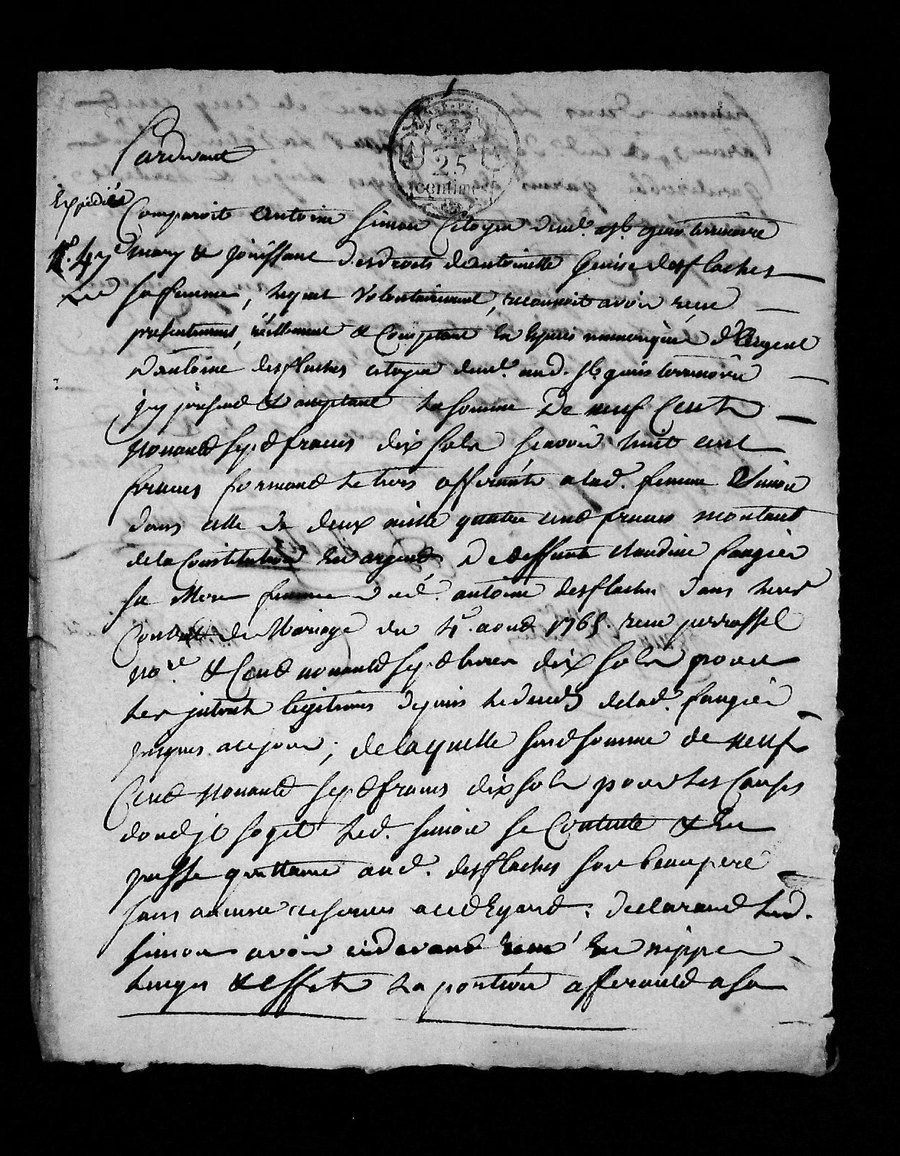 Pardevant
25
centimes
Expédiée
Comparoit antoine Simon Citoyen demt. a St. genis terrenoire
mary & jouissant des droits de antoinette desflaches
sa femme, lequel volontairement, reconnoit avoir recu
presentement, réellement & Comptant En Espèces numerique d'argent
d'antoine desflaches citoyen demt. aud. St. genis terrenoire
icy présend & acceptant La somme De neuf Cent
Nonand sepd francs dix sols scavoir huit cent
francs formand le tiers afférante a lad. femme Simon
dans celle de deux mille quatre cend francs montant
de la Constitution En argend a deffunte Claudine fangier
sa Mere femme dud. antoine desflaches dans leur
Contrat de Mariage du 4e. aoud 1765. recu par
Nore. & Cend nonand sepd livres dix sols pour
les intérets légitimes depuis le deceds de lad. fangier
jusques a ce jour; de laquelle susd somme de neuf
Cend Nonand sepd francs dix sols pour les Causes
dond il sagit led. Simon se Contente & En
passe quittance aud. desflaches son beaupere
sans aucune reserves a ced Egard; declarand led.
Simon avoir cidevand recu En nippes
linges & effets La portion afferande a sa